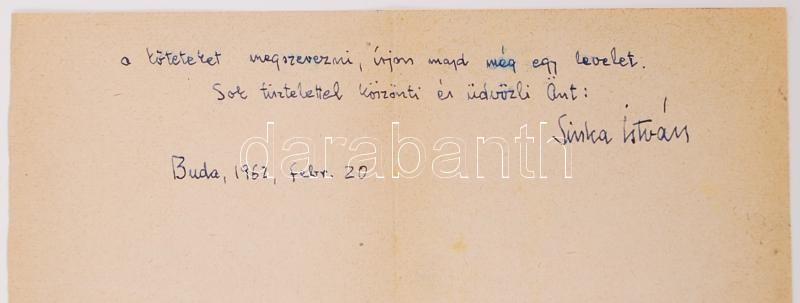 a köteteket megszerezni, írjon majd még egy levelet.
Sok tisztelettel köszönti és üdvözli Önt:
Sinka István
Buda, 1962, febr. 20
darabanth.com